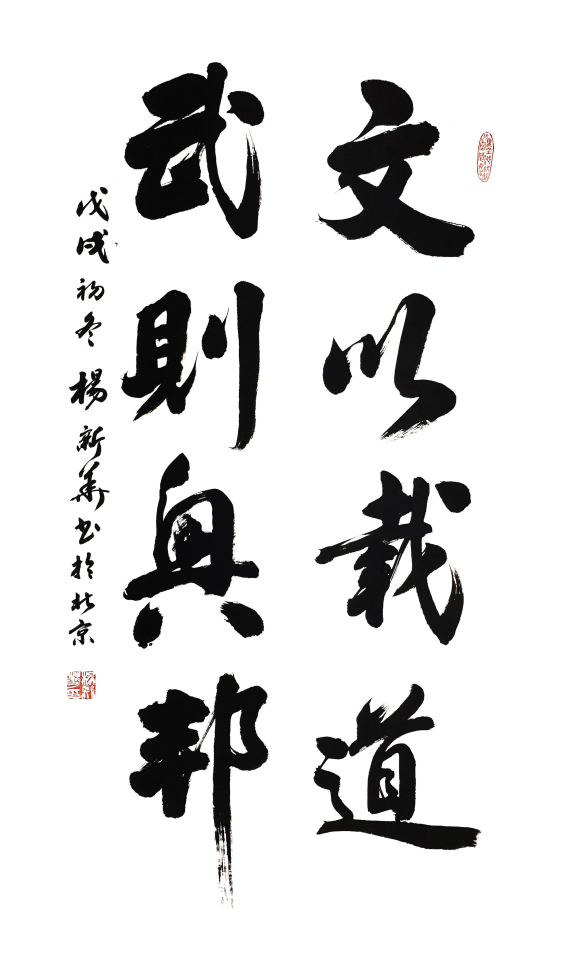 文以載道
武則興邦
戊戌初冬楊新華書於北京